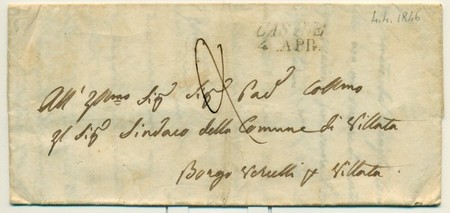 4.4. 1846
4 APR.
All' Illmo Sigr Sigr Pad Collmo
Il Sigr Sindaco della Comune di Villata
Borgo Vercelli p Villata